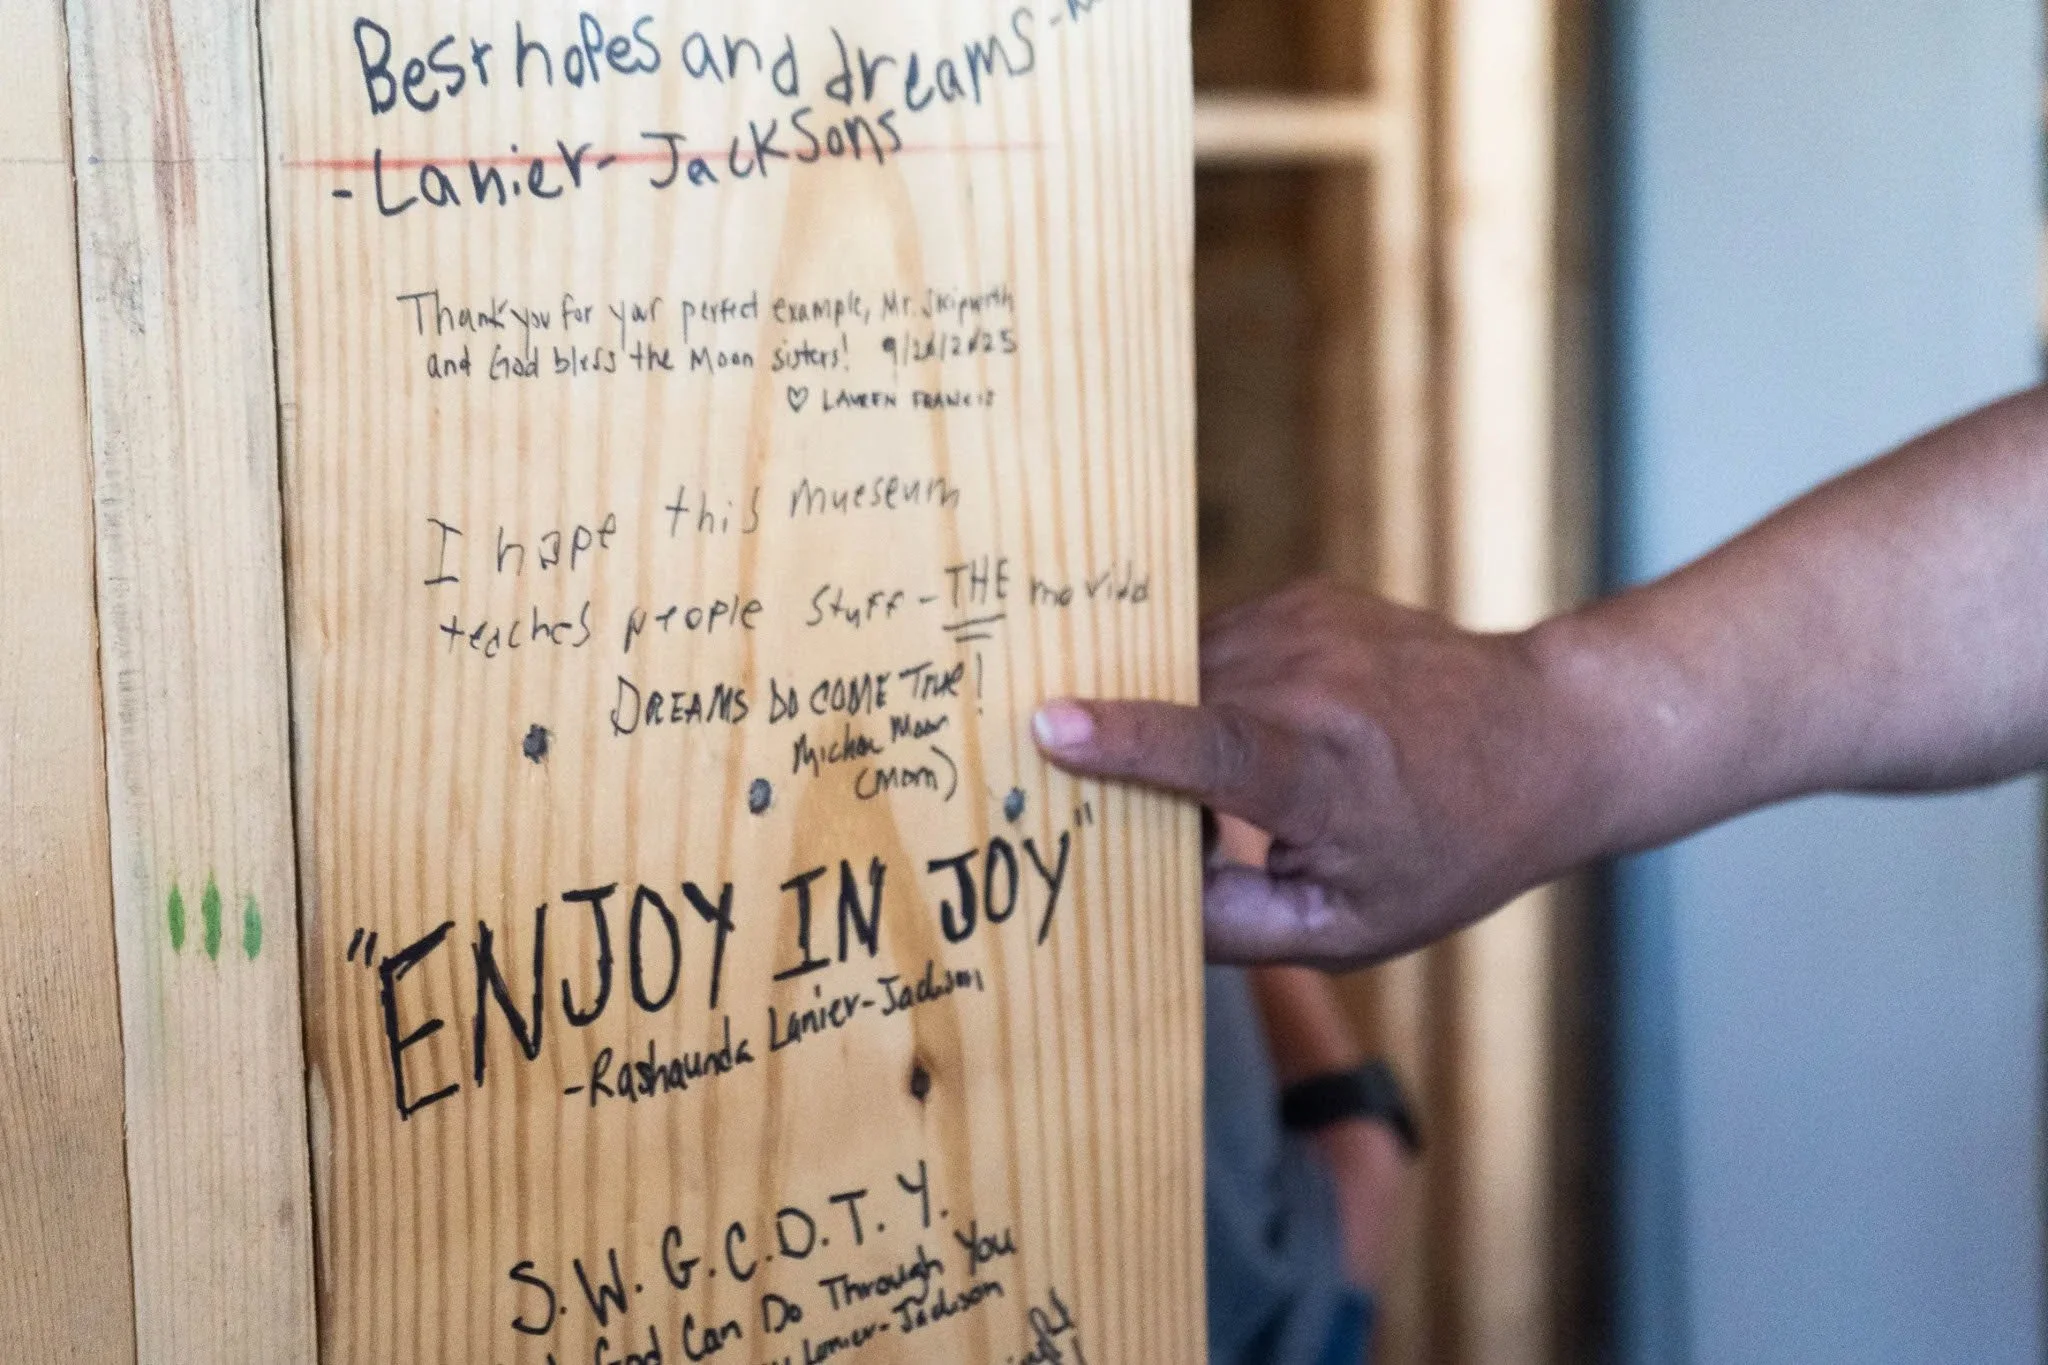 Best hopes and dreams -
- Lanier-Jacksons
Thank you for your perfect example, Mr. Skipworth
and God bless the Moon sisters! 9/20/2025
♡ LAUREN FRANCIS
I hope this mueseum
teaches people stuff - THE
DREAMS DO COME True!
Moon
(Mom)
"ENJOY IN JOY"
-Rashaunda Lanier-Jackson
S.W.G.C.D.T.Y.
God Can Do Through You
Lanier-Jackson